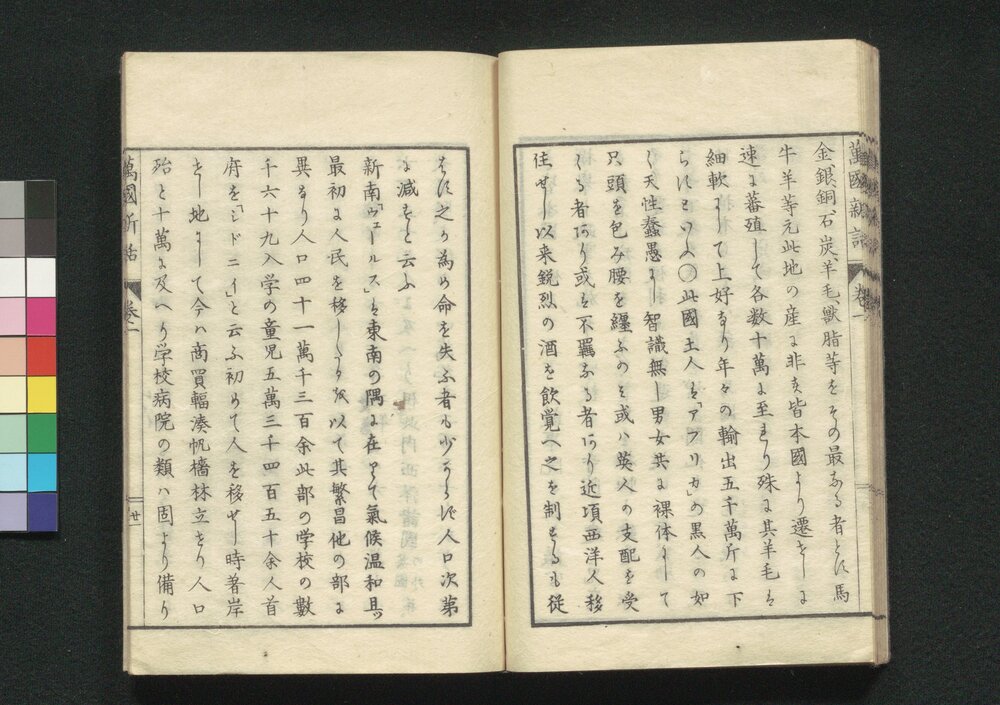 萬國新話 卷二
金、銀、銅、石炭、羊毛、獸脂等をその最なる者とす馬
牛羊等元此地の産に非ず皆本國より遷せしに
速に蕃殖して各数十萬に至れり殊に其羊毛は
細軟にして上好なり年々の輸出五千萬斤に下
らずといふ○此國土人は「アフリカ」の黒人の如
く天性蠢愚にし智識無し男女共に裸体にして
只頭を包み腰を纒ふのみ或ハ英人の支配を受
くる者あり或は不羈なる者あり近頃西洋人移
住せし以来鋭烈の酒を飲覚へ之を制せらるも従
はず之の為め命を失ふ者も少からず人口次第
に減ずと云ふ
新南「ヴェールス」は東南の隅に在りて氣候温和且ッ
最初に人民を移したるを以て其繁昌他の部に
異なり人口四十一萬千三百余此部の学校の數
千六十九入学の童児五萬三千四百五十余人首
府を「シドニイ」と云ふ初めて人を移せし時著岸
せし地にして今ハ商買輻湊帆檣林立せり人口
殆と十萬に及へり学校病院の類ハ固より備り
萬國新話 卷二 廿